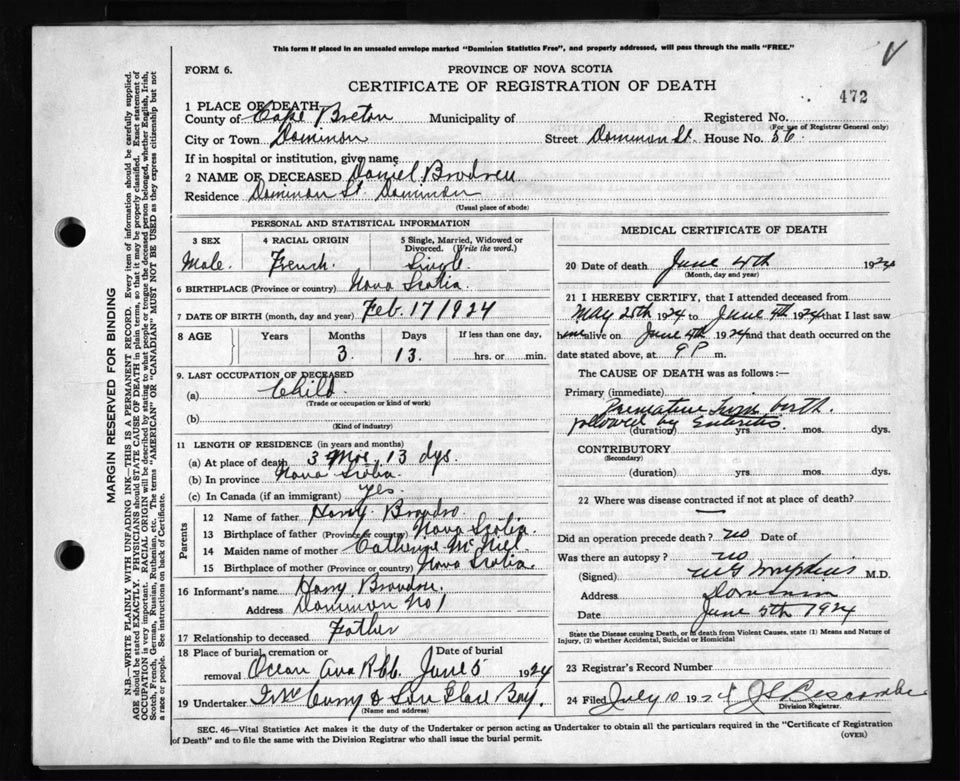 This form if placed in an unsealed envelope marked "Dominion Statistics Free", and properly addressed, will pass through the mails "FREE."
FORM 6.
PROVINCE OF NOVA SCOTIA
CERTIFICATE OF REGISTRATION OF DEATH
472
1 PLACE OF DEATH
County of Cape Breton Municipality of Registered No.
(For use of Registrar General only)
City or Town Dominion Street Dominion St. House No. 56.
If in hospital or institution, give name
2 NAME OF DECEASED Daniel
Residence Dominion St. Dominion
(Usual place of abode)
PERSONAL AND STATISTICAL INFORMATION
3 SEX 4 RACIAL ORIGIN 5 Single, Married, Widowed or Divorced. (Write the word.)
Male. French. Single.
6 BIRTHPLACE (Province or country) Nova Scotia.
7 DATE OF BIRTH (month, day and year) Feb. 17 1924
8 AGE Years Months Days If less than one day,
3. 13. hrs. or min.
9. LAST OCCUPATION OF DECEASED
(a) Child
(Trade or occupation or kind of work)
(b)
(Kind of industry)
11 LENGTH OF RESIDENCE (in years and months)
(a) At place of death 3 Mos. 13 dys.
(b) In province Nova Scotia.
(c) In Canada (if an immigrant) yes.
Parents
12 Name of father Harry
13 Birthplace of father (Province or country) Nova Scotia.
14 Maiden name of mother Catherine McNeil
15 Birthplace of mother (Province or country) Nova Scotia.
16 Informant's name Harry
Address Dominion No 1
17 Relationship to deceased Father
18 Place of burial, cremation or removal Date of burial
Ocean Ave June 5 1924
19 Undertaker Curry & Son Glace Bay.
(Name and address)
MEDICAL CERTIFICATE OF DEATH
20 Date of death June 4th 1924
(Month, day and year)
21 I HEREBY CERTIFY, that I attended deceased from
May 25th 1924 to June 4th 1924 that I last saw
him alive on June 4th 1924 and that death occurred on the
date stated above, at 9 P m.
The CAUSE OF DEATH was as follows :—
Primary (immediate)
Premature from birth.
followed by Enteritis
(duration) yrs. mos. dys.
CONTRIBUTORY
(Secondary)
(duration) yrs. mos. dys.
22 Where was disease contracted if not at place of death?
—
Did an operation precede death? no Date of
Was there an autopsy? no
(Signed) M.D.
Address Dominion
Date June 5th 1924
State the Disease causing Death, or in death from Violent Causes, state (1) Means and Nature of
Injury, (2) whether Accidental, Suicidal or Homicidal
23 Registrar's Record Number
24 Filed July 10 1924
Division Registrar.
SEC. 46—Vital Statistics Act makes it the duty of the Undertaker or person acting as Undertaker to obtain all the particulars required in the "Certificate of Registration
of Death" and to file the same with the Division Registrar who shall issue the burial permit.
(OVER)
MARGIN RESERVED FOR BINDING
N.B.—WRITE PLAINLY WITH UNFADING INK—THIS IS A PERMANENT RECORD. Every item of information should be carefully supplied.
AGE should be stated EXACTLY. PHYSICIANS should STATE CAUSE OF DEATH in plain terms, so that it may be properly classified. Exact statement of
OCCUPATION is very important. RACIAL ORIGIN will be described by stating to what people or tongue the deceased person belonged, whether English, Irish,
Scotch, French, German, Russian, Ruthenian, etc. The terms "AMERICAN" or "CANADIAN" MUST NOT BE USED as they express citizenship but not
a race or people. See instructions on back of Certificate.